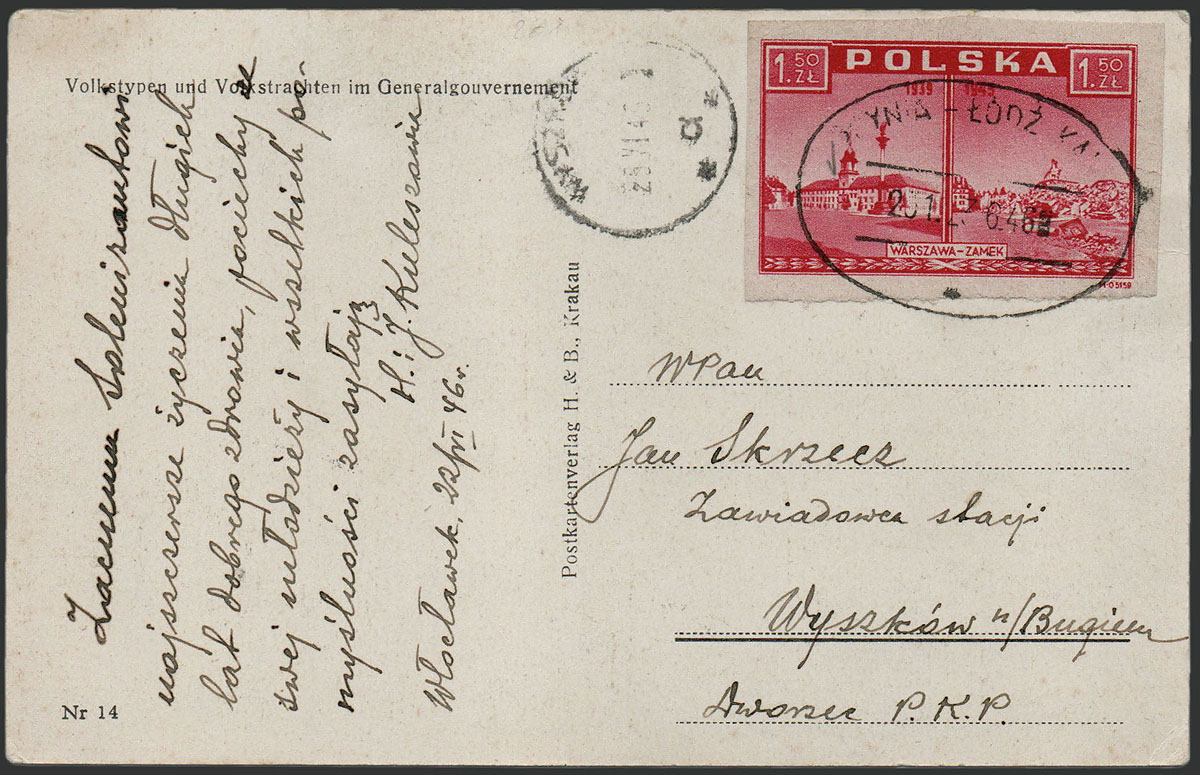 Volkstypen und Volkstrachten im Generalgouvernement
Zacnemu Solenizantowi
najszczersze życzenia długich
lat dobrego zdrowia, pociechy z
swej młodzieży i wszelkich po-
myślności zasyłają
H. i J. Kuleszowie
Włocławek, 22/VI 46 r.
Nr 14
Postkartenverlag H. & B., Krakau
23 VI 46
a
POLSKA
1.50 ZŁ
1.50 ZŁ
1939 1945
WARSZAWA-ZAMEK
M-05159
YNIA - ŁÓDŹ KAL
6.46
WPan
Jan Skrzecz
Zawiadowca stacji
Wyszków n/Bugiem
Dworzec P.K.P.